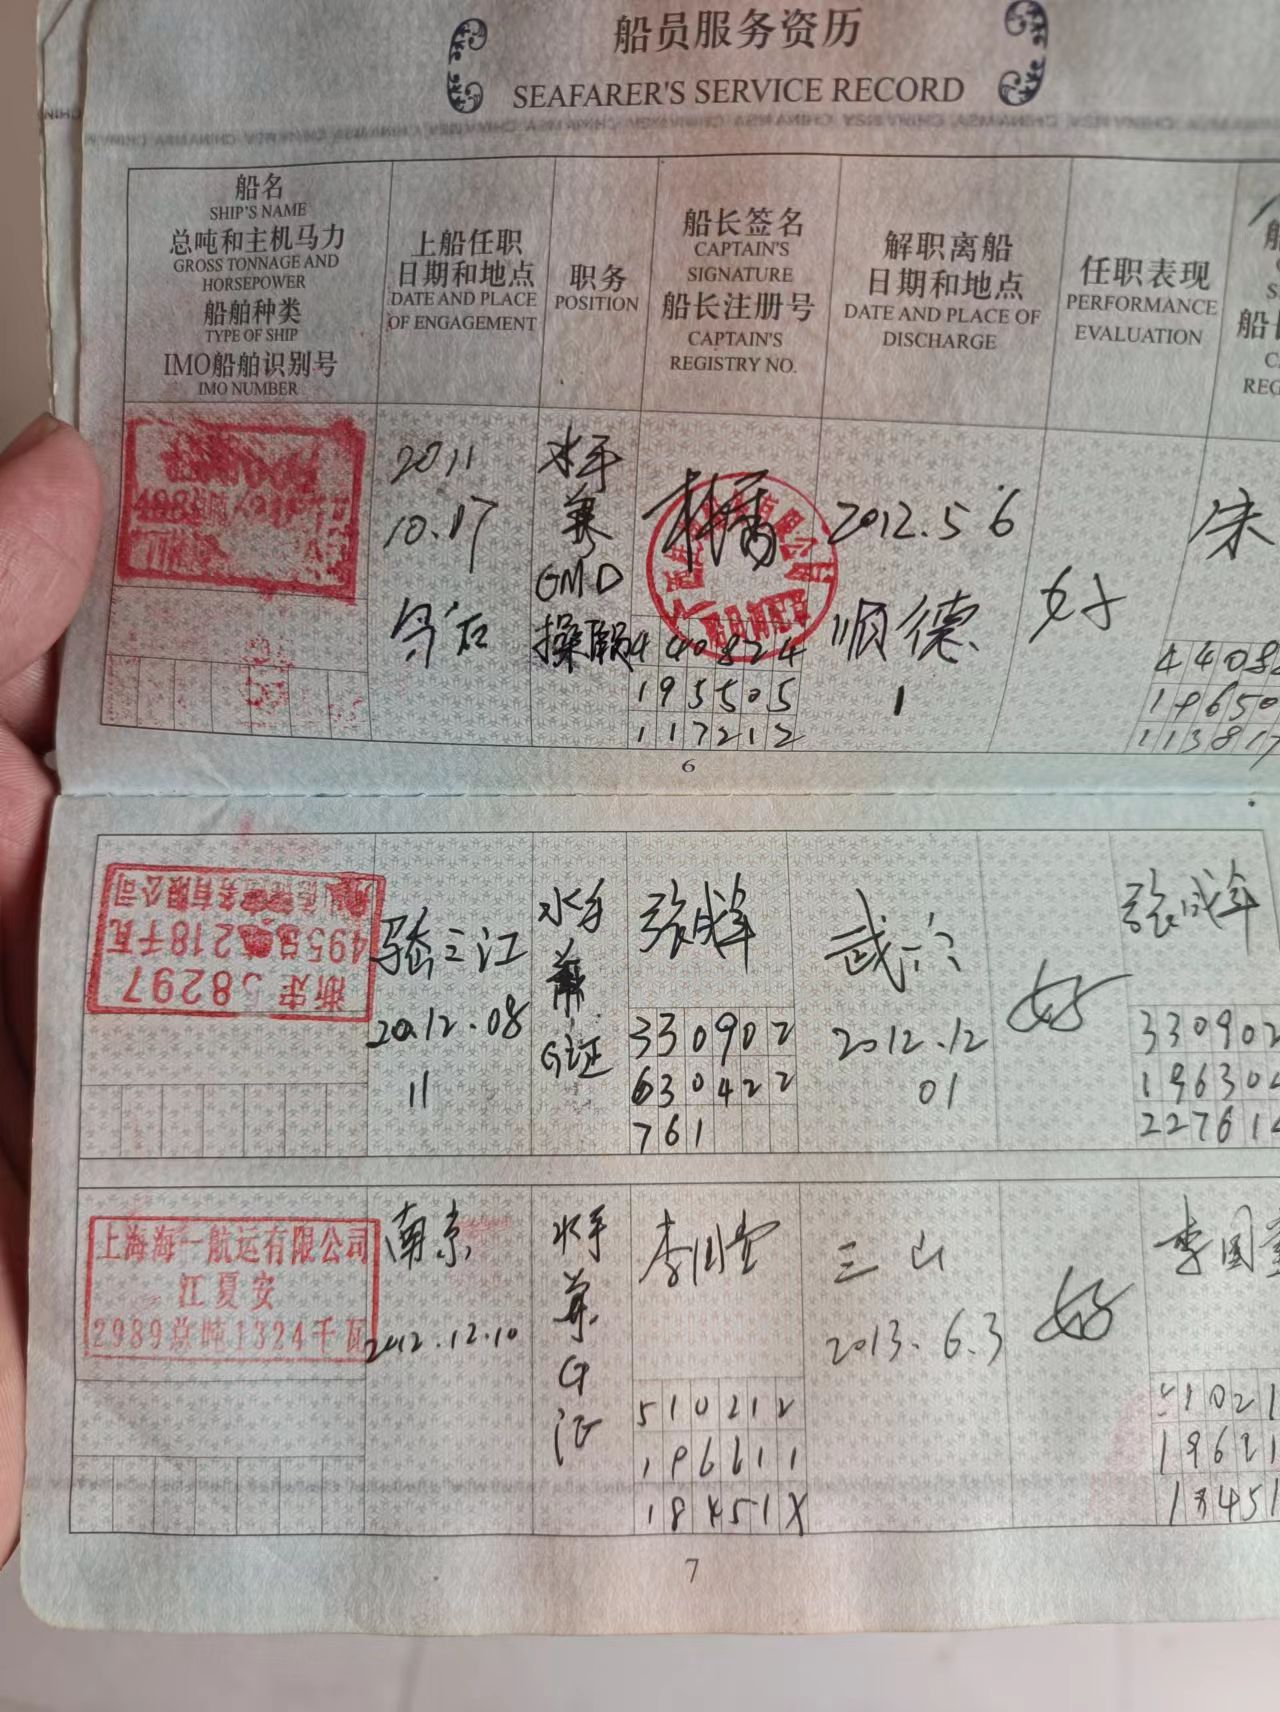 船员服务资历
SEAFARER'S SERVICE RECORD
船名
SHIP'S NAME
总吨和主机马力
GROSS TONNAGE AND
HORSEPOWER
船舶种类
TYPE OF SHIP
IMO船舶识别号
IMO NUMBER
上船任职
日期和地点
DATE AND PLACE
OF ENGAGEMENT
职务
POSITION
船长签名
CAPTAIN'S
SIGNATURE
船长注册号
CAPTAIN'S
REGISTRY NO.
解职离船
日期和地点
DATE AND PLACE OF
DISCHARGE
任职表现
PERFORMANCE
EVALUATION
2011
10.17
水手
兼
GMD
操
440824
195505
117212
2012.5 6
顺德
1
好
朱
4408
19650
113817
6
495总吨218千瓦
浙定58297
三江
2012.08
11
水手
兼
G证
张成军
330902
630422
761
2012.12
01
好
张成军
330902
19630
22761
上海海一航运有限公司
江夏安
2989总吨1324千瓦
南京
2012.12.10
水手
兼
G
证
李国堂
510212
196611
18451X
三山
2013.6.3
好
李国堂
51021
19621
18451
7